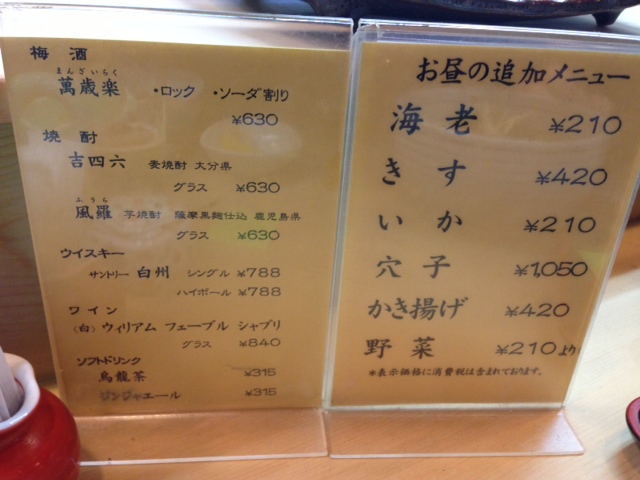 梅酒
まんざいらく
萬歳楽 ・ロック ・ソーダ割り
¥630
焼酎
吉四六 麦焼酎 大分県
グラス ¥630
ふうら
風羅 芋焼酎 薩摩黒麹仕込 鹿児島県
グラス ¥630
ウイスキー
サントリー 白州 シングル ¥788
ハイボール ¥788
ワイン
(白) ウィリアム フェーブル シャブリ
グラス ¥840
ソフトドリンク
烏龍茶 ¥315
ジンジャエール ¥315
お昼の追加メニュー
海老 ¥210
きす ¥420
いか ¥210
穴子 ¥1,050
かき揚げ ¥420
野菜 ¥210より
*表示価格に消費税は含まれております。